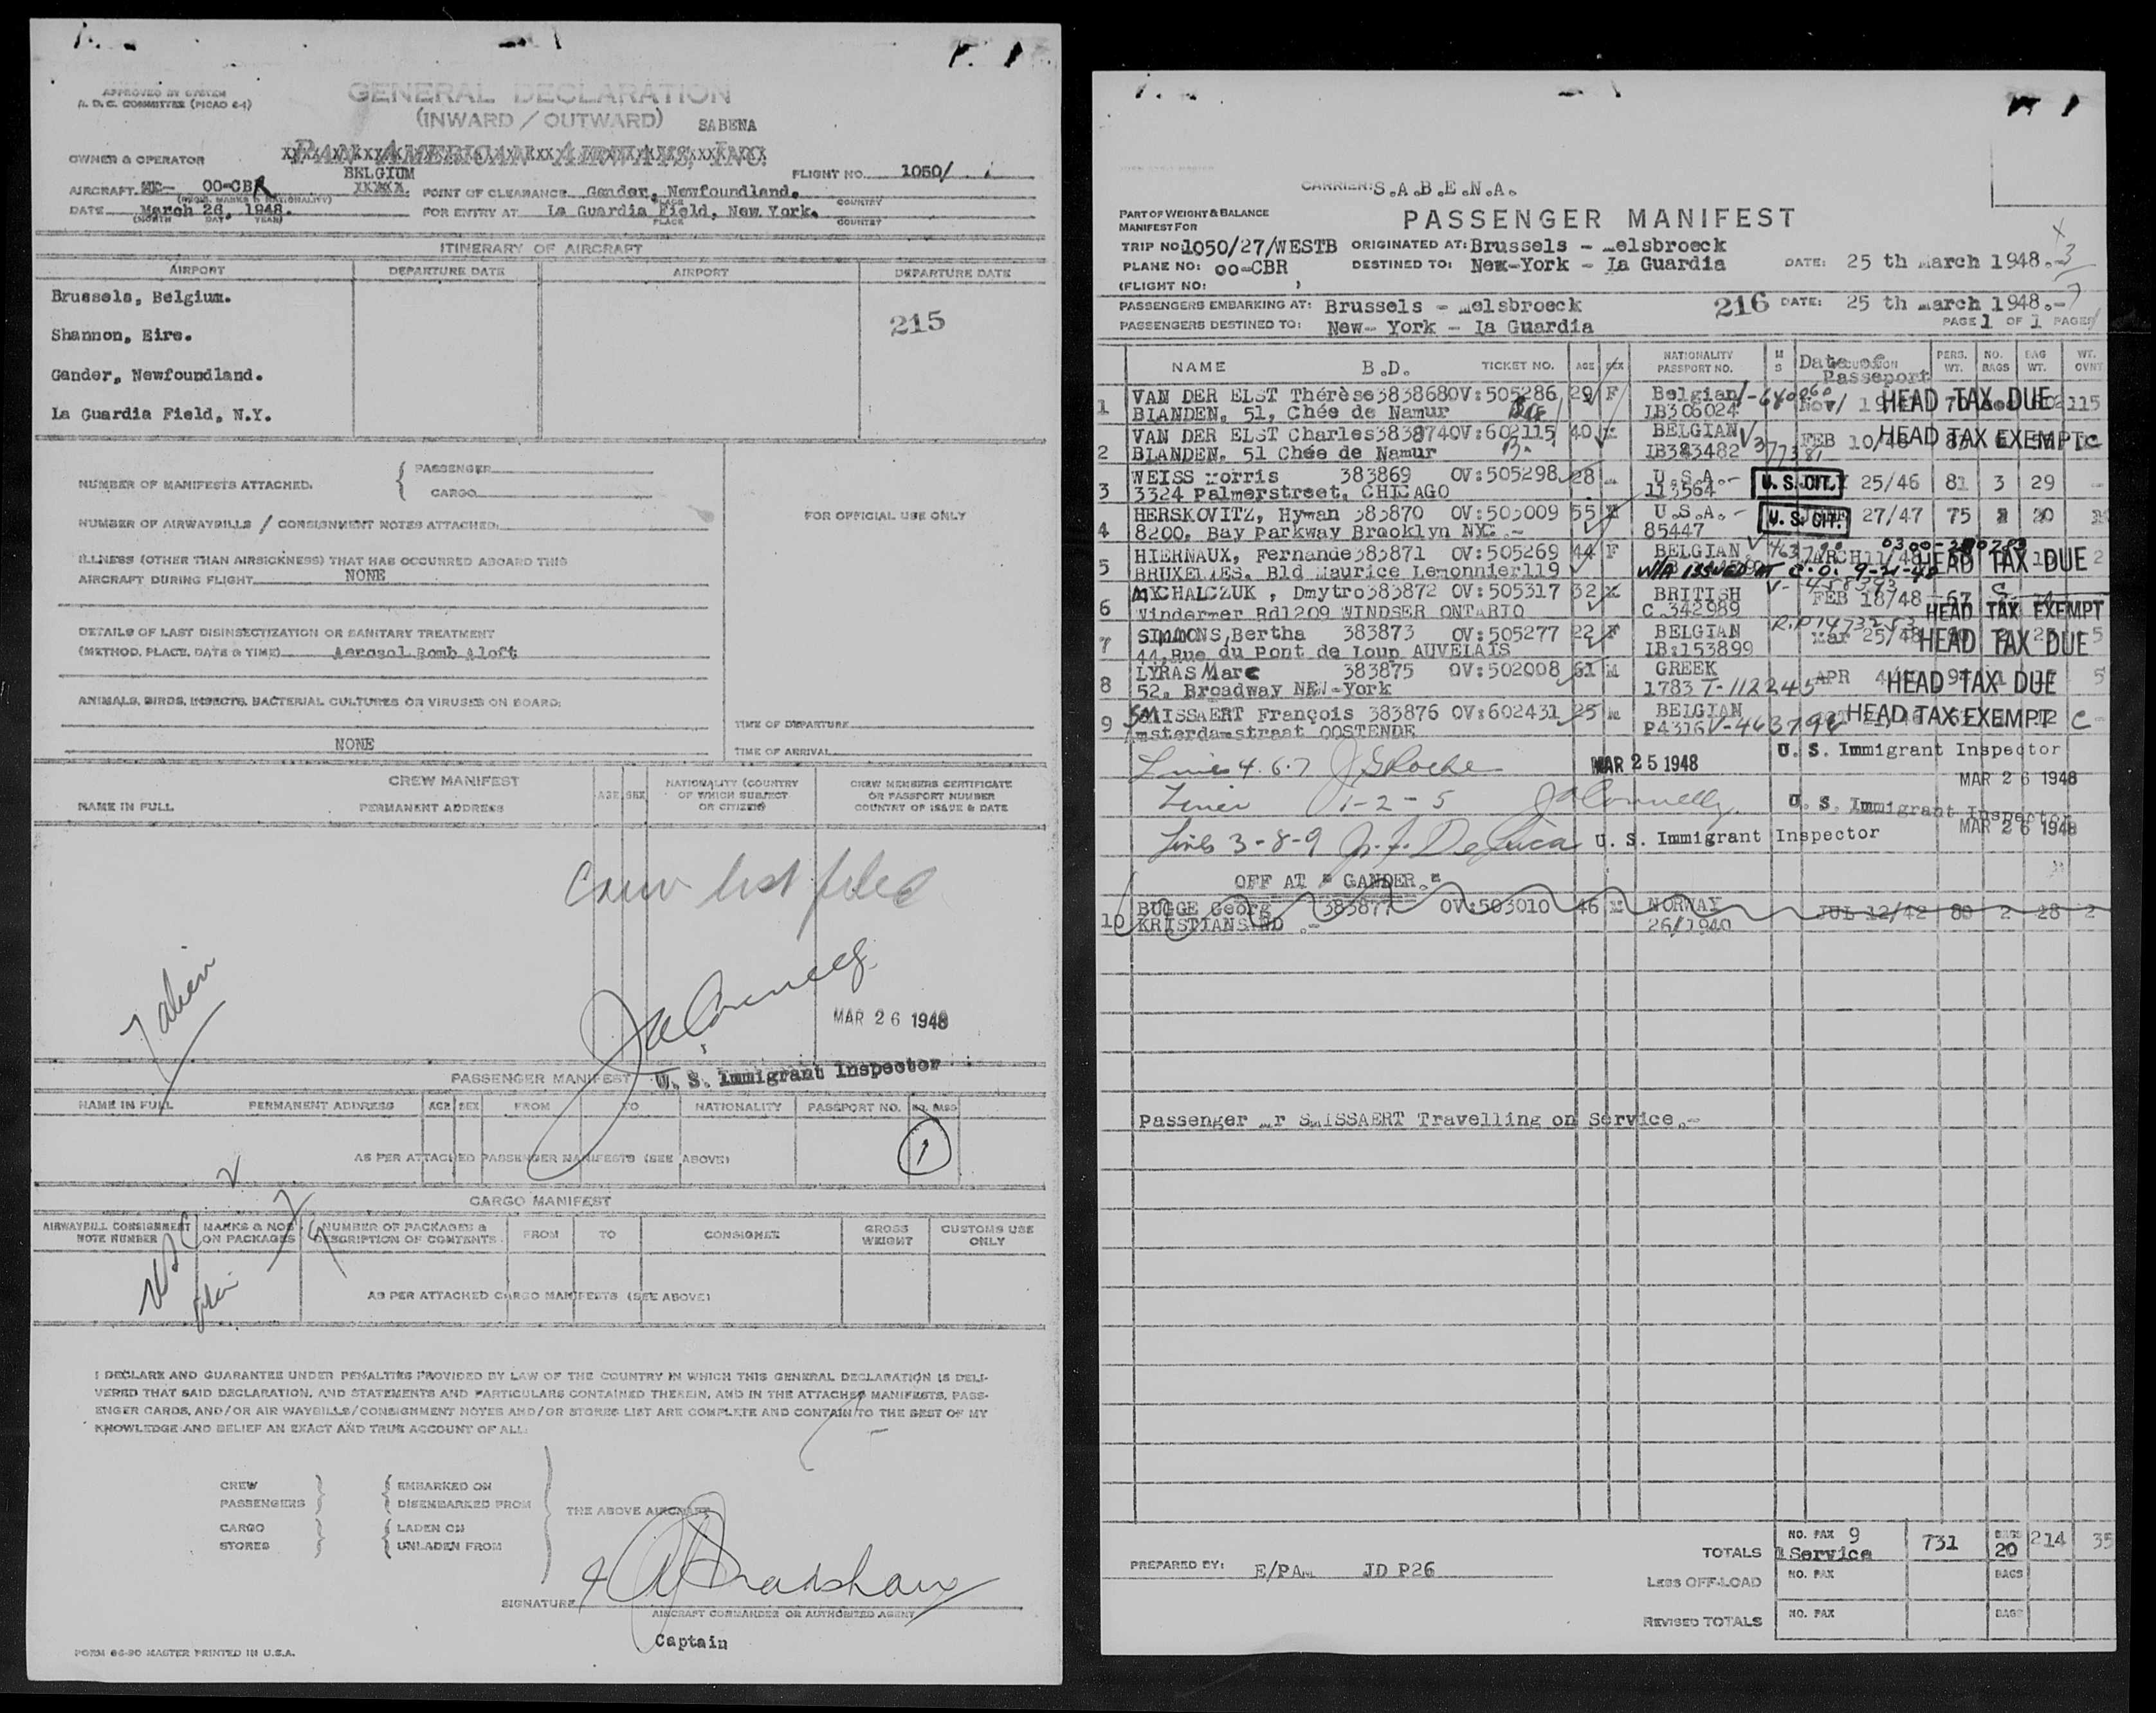 APPROVED BY SYSTEM
A. D. C. COMMITTEE (PICAO 6-1)
GENERAL DECLARATION
(INWARD / OUTWARD) SABENA
PAN AMERICAN AIRWAYS, INC.
OWNER & OPERATOR
BELGIUM
FLIGHT NO. 1050/
AIRCRAFT OO-CBR XXXXX. POINT OF CLEARANCE Gander, Newfoundland.
(REGN. MARKS & NATIONALITY) PLACE COUNTRY
DATE March 26, 1948. FOR ENTRY AT La Guardia Field, New York.
(MONTH DAY YEAR) PLACE COUNTRY
ITINERARY OF AIRCRAFT
AIRPORT DEPARTURE DATE AIRPORT DEPARTURE DATE
Brussels, Belgium.
215
Shannon, Eire.
Gander, Newfoundland.
La Guardia Field, N.Y.
NUMBER OF MANIFESTS ATTACHED. { PASSENGER
CARGO
NUMBER OF AIRWAYBILLS / CONSIGNMENT NOTES ATTACHED:
FOR OFFICIAL USE ONLY
ILLNESS (OTHER THAN AIRSICKNESS) THAT HAS OCCURRED ABOARD THIS
AIRCRAFT DURING FLIGHT NONE
DETAILS OF LAST DISINSECTIZATION OR SANITARY TREATMENT
(METHOD, PLACE, DATE & TIME) Aerosol Bomb Aloft
ANIMALS, BIRDS, INSECTS, BACTERIAL CULTURES OR VIRUSES ON BOARD:
NONE
TIME OF DEPARTURE
TIME OF ARRIVAL
CREW MANIFEST
NAME IN FULL PERMANENT ADDRESS AGE SEX NATIONALITY (COUNTRY OF WHICH SUBJECT OR CITIZEN) CREW MEMBERS CERTIFICATE OR PASSPORT NUMBER COUNTRY OF ISSUE & DATE
Crew list filed
7 alien
MAR 26 1948
U. S. Immigrant Inspector
PASSENGER MANIFEST
NAME IN FULL PERMANENT ADDRESS AGE SEX FROM TO NATIONALITY PASSPORT NO. NO. BAGS
1
AS PER ATTACHED PASSENGER MANIFESTS (SEE ABOVE)
CARGO MANIFEST
AIRWAYBILL CONSIGNMENT NOTE NUMBER MARKS & NOS ON PACKAGES NUMBER OF PACKAGES & DESCRIPTION OF CONTENTS FROM TO CONSIGNEE GROSS WEIGHT CUSTOMS USE ONLY
AS PER ATTACHED CARGO MANIFESTS (SEE ABOVE)
I DECLARE AND GUARANTEE UNDER PENALTIES PROVIDED BY LAW OF THE COUNTRY IN WHICH THIS GENERAL DECLARATION IS DELI-
VERED THAT SAID DECLARATION, AND STATEMENTS AND PARTICULARS CONTAINED THEREIN, AND IN THE ATTACHED MANIFESTS, PASS-
ENGER CARDS, AND/OR AIR WAYBILLS/CONSIGNMENT NOTES AND/OR STORES LIST ARE COMPLETE AND CONTAIN TO THE BEST OF MY
KNOWLEDGE AND BELIEF AN EXACT AND TRUE ACCOUNT OF ALL:
CREW EMBARKED ON
PASSENGERS DISEMBARKED FROM
THE ABOVE AIRCRAFT
CARGO LADEN ON
STORES UNLADEN FROM
SIGNATURE
AIRCRAFT COMMANDER OR AUTHORIZED AGENT
Captain
FORM 66-90 MASTER PRINTED IN U.S.A.
CARRIER: S.A.B.E.N.A.
PART OF WEIGHT & BALANCE
MANIFEST FOR
PASSENGER MANIFEST
TRIP NO: 1050/27/WESTB ORIGINATED AT: Brussels - elsbroeck
PLANE NO: OO-CBR DESTINED TO: New-York - La Guardia DATE: 25 th March 1948.-
(FLIGHT NO: )
PASSENGERS EMBARKING AT: Brussels - elsbroeck 216 DATE: 25 th March 1948.-
PASSENGERS DESTINED TO: New- York - La Guardia PAGE 1 OF 1 PAGES
NAME B.D. TICKET NO. AGE SEX NATIONALITY PASSPORT NO. M S Date of Passeport PERS. WT. NO. BAGS BAG WT. WT. OVNT
1 VAN DER ELST Thérèse 383868 OV:505286 29 F Belgian HEAD TAX DUE 115
BLANDEN. 51, Chée de Namur IB306024
2 VAN DER ELST Charles 383874 OV:602115 40 BELGIAN FEB 10/48 HEAD TAX EXEMPT C
BLANDEN. 51 Chée de Namur IB343482
3 WEISS Morris 383869 OV:505298 28 U.S.A.- U. S. CIT. 25/46 81 3 29
3324 Palmerstreet, CHICAGO 113564
4 HERSKOVITZ, Hyman 383870 OV:503009 55 U.S.A.- U. S. CIT. 27/47 75 20
8200, Bay Parkway Brooklyn NYC.- 85447
5 HIERNAUX, Fernande 383871 OV:505269 44 F BELGIAN MARCH 11/48 HEAD TAX DUE 2
BRUXELLES. Bld Maurice Lemonnier 119 ISSUED AT C.O. 9-21-48
6 MYCHALCZUK, Dmytro 383872 OV:505317 32 BRITISH V-458393 FEB 18/48 67 HEAD TAX EXEMPT
Windermer Rd 1209 WINDSER ONTARIO C.342989
7 SIMMONS, Bertha 383873 OV:505277 22 F BELGIAN Mar 25/48 HEAD TAX DUE 5
44, Rue du Pont de Loup AUVELAIS IB:153899
8 LYRAS Marc 383875 OV:502008 61 M GREEK APR HEAD TAX DUE 5
52, Broadway NEW-York 1783 T-112245
9 SMISSAERT François 383876 OV:602431 25 M BELGIAN HEAD TAX EXEMPT C
Amsterdamstraat OOSTENDE P4316
Lines 4.6.7 MAR 25 1948 U. S. Immigrant Inspector
MAR 26 1948
Lines 1-2-5 U. S. Immigrant Inspector
MAR 26 1948
Lines 3-8-9 U. S. Immigrant Inspector
OFF AT " GANDER."
10 BUGGE Georg 383877 OV:503010 46 NORWAY JUL 12/42 80 2 28 2
KRISTIANSAND .- 26/1940
Passenger r SMISSAERT Travelling on Service.-
PREPARED BY: E/PA JD P26
TOTALS NO. PAX 9 731 BAGS 20 214 35
1 Service
LESS OFF-LOAD NO. PAX BAGS
REVISED TOTALS NO. PAX BAGS